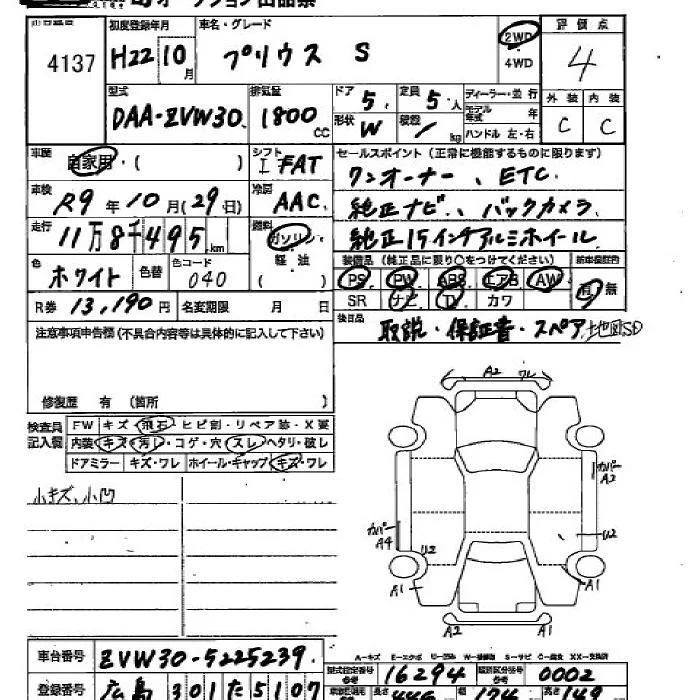 出品票
初度登録年月 車名・グレード 評価点
4137 H22 10月 プリウス S 2WD 4WD 4
型式 排気量 ドア 5 定員 5人 ディーラー・並行 外装 内装
DAA-ZVW30 1800cc 形状 W 積載 / kg モデル年式 年 ハンドル 左・右 C C
車歴 自家用・( ) シフト I FAT セールスポイント(正常に機能するものに限ります)
車検 R9年10月(29日) 冷房 AAC ワンオーナー、ETC
走行 11万8千495km 燃料 ガソリン・軽油 ( ) 純正ナビ、バックカメラ
純正15インチアルミホイール
色 ホワイト 色替 色コード 040 装備品(純正品に限り○をつけてください) 新車保証書
PS PW ABS エアB AW 有 無
R券 13,190円 名変期限 月 日 SR ナビ TV カワ
後日品 取説・保証書・スペア 地図SD
注意事項申告欄(不具合内容等は具体的に記入して下さい)
修復歴 有(箇所 )
検査員記入欄 FW キズ・飛石・ヒビ割・リペア跡・X要
内装 キズ・汚レ・コゲ・穴・スレ・ヘタリ・破レ
ドアミラー キズ・ワレ ホイール・キャップ キズ・ワレ
小キズ、小凹
A2 ワレ
カバー A2
カバー A4
U2 U2
A1 A1
A2 A1
A-キズ E-エクボ U-凹み W-補修跡 S-サビ C-腐食 XX-交換済
車台番号 ZVW30-5225239 型式指定番号 16294 類別区分番号 0002
登録番号 広島 301 た 5107 長さ 幅 高さ